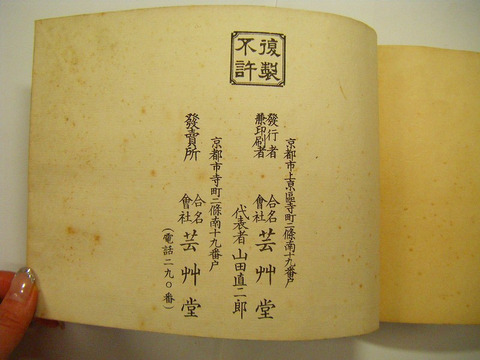 不許復製
京都市上京區寺町二條南十九番戸
發行者兼印刷者
合名會社 芸艸堂
代表者 山田直二郎
京都市寺町二條南十九番戸
發賣所
合名會社 芸艸堂
(電話二九〇番)